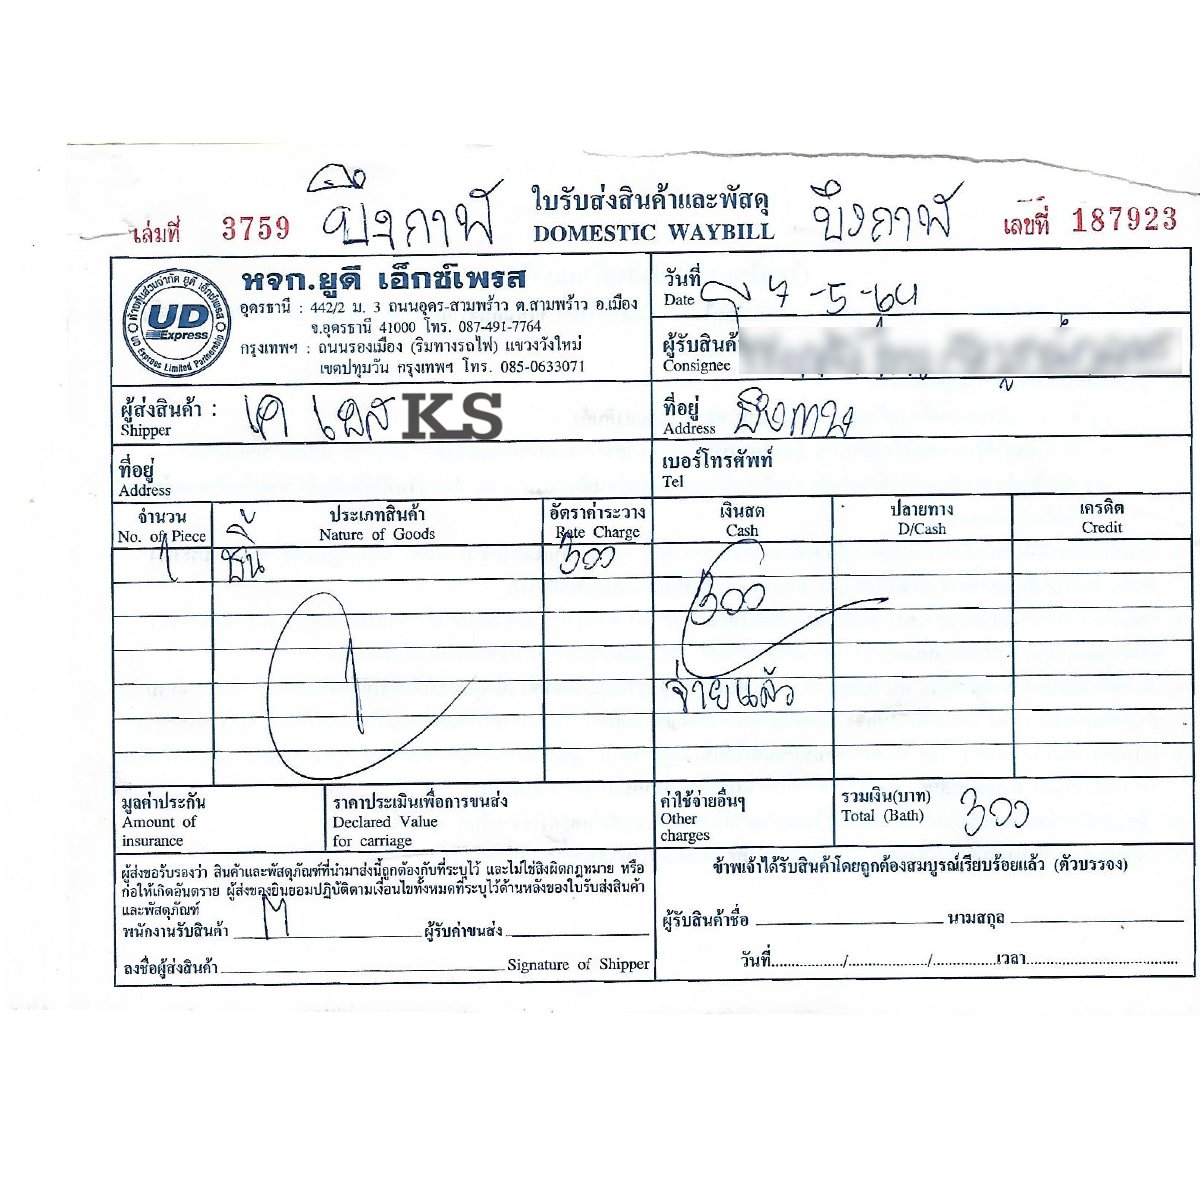 เล่มที่ 3759 บึงกาฬ ใบรับส่งสินค้าและพัสดุ บึงกาฬ เลขที่ 187923
DOMESTIC WAYBILL
หจก.ยูดี เอ็กซ์เพรส
อุดรธานี : 442/2 ม. 3 ถนนอุดร-สามพร้าว ต.สามพร้าว อ.เมือง
จ.อุดรธานี 41000 โทร. 087-491-7764
กรุงเทพฯ : ถนนรองเมือง (ริมทางรถไฟ) แขวงวังใหม่
เขตปทุมวัน กรุงเทพฯ โทร. 085-0633071
ห้างหุ้นส่วนจำกัด ยูดี เอ็กซ์เพรส
UD
Express
UD Express Limited Partnership
วันที่
Date 7-5-64
ผู้รับสินค้า
Consignee
ผู้ส่งสินค้า : เค เอส KS
Shipper
ที่อยู่
Address บึงกาฬ
ที่อยู่
Address
เบอร์โทรศัพท์
Tel
จำนวน ประเภทสินค้า อัตราค่าระวาง เงินสด ปลายทาง เครดิต
No. of Piece Nature of Goods Rate Charge Cash D/Cash Credit
1 ชิ้น 300
300
1
จ่ายแล้ว
มูลค่าประกัน ราคาประเมินเพื่อการขนส่ง ค่าใช้จ่ายอื่นๆ รวมเงิน(บาท) 300
Amount of Declared Value Other Total (Bath)
insurance for carriage charges
ผู้ส่งขอรับรองว่า สินค้าและพัสดุภัณฑ์ที่นำมาส่งนี้ถูกต้องกับที่ระบุไว้ และไม่ใช่สิ่งผิดกฎหมาย หรือ
ก่อให้เกิดอันตราย ผู้ส่งของยินยอมปฏิบัติตามเงื่อนไขทั้งหมดที่ระบุไว้ด้านหลังของใบรับส่งสินค้า
และพัสดุภัณฑ์
พนักงานรับสินค้า M ผู้รับค่าขนส่ง
ลงชื่อผู้ส่งสินค้า Signature of Shipper
ข้าพเจ้าได้รับสินค้าโดยถูกต้องสมบูรณ์เรียบร้อยแล้ว (ตัวบรรจง)
ผู้รับสินค้าชื่อ นามสกุล
วันที่................../..................../................เวลา......................................